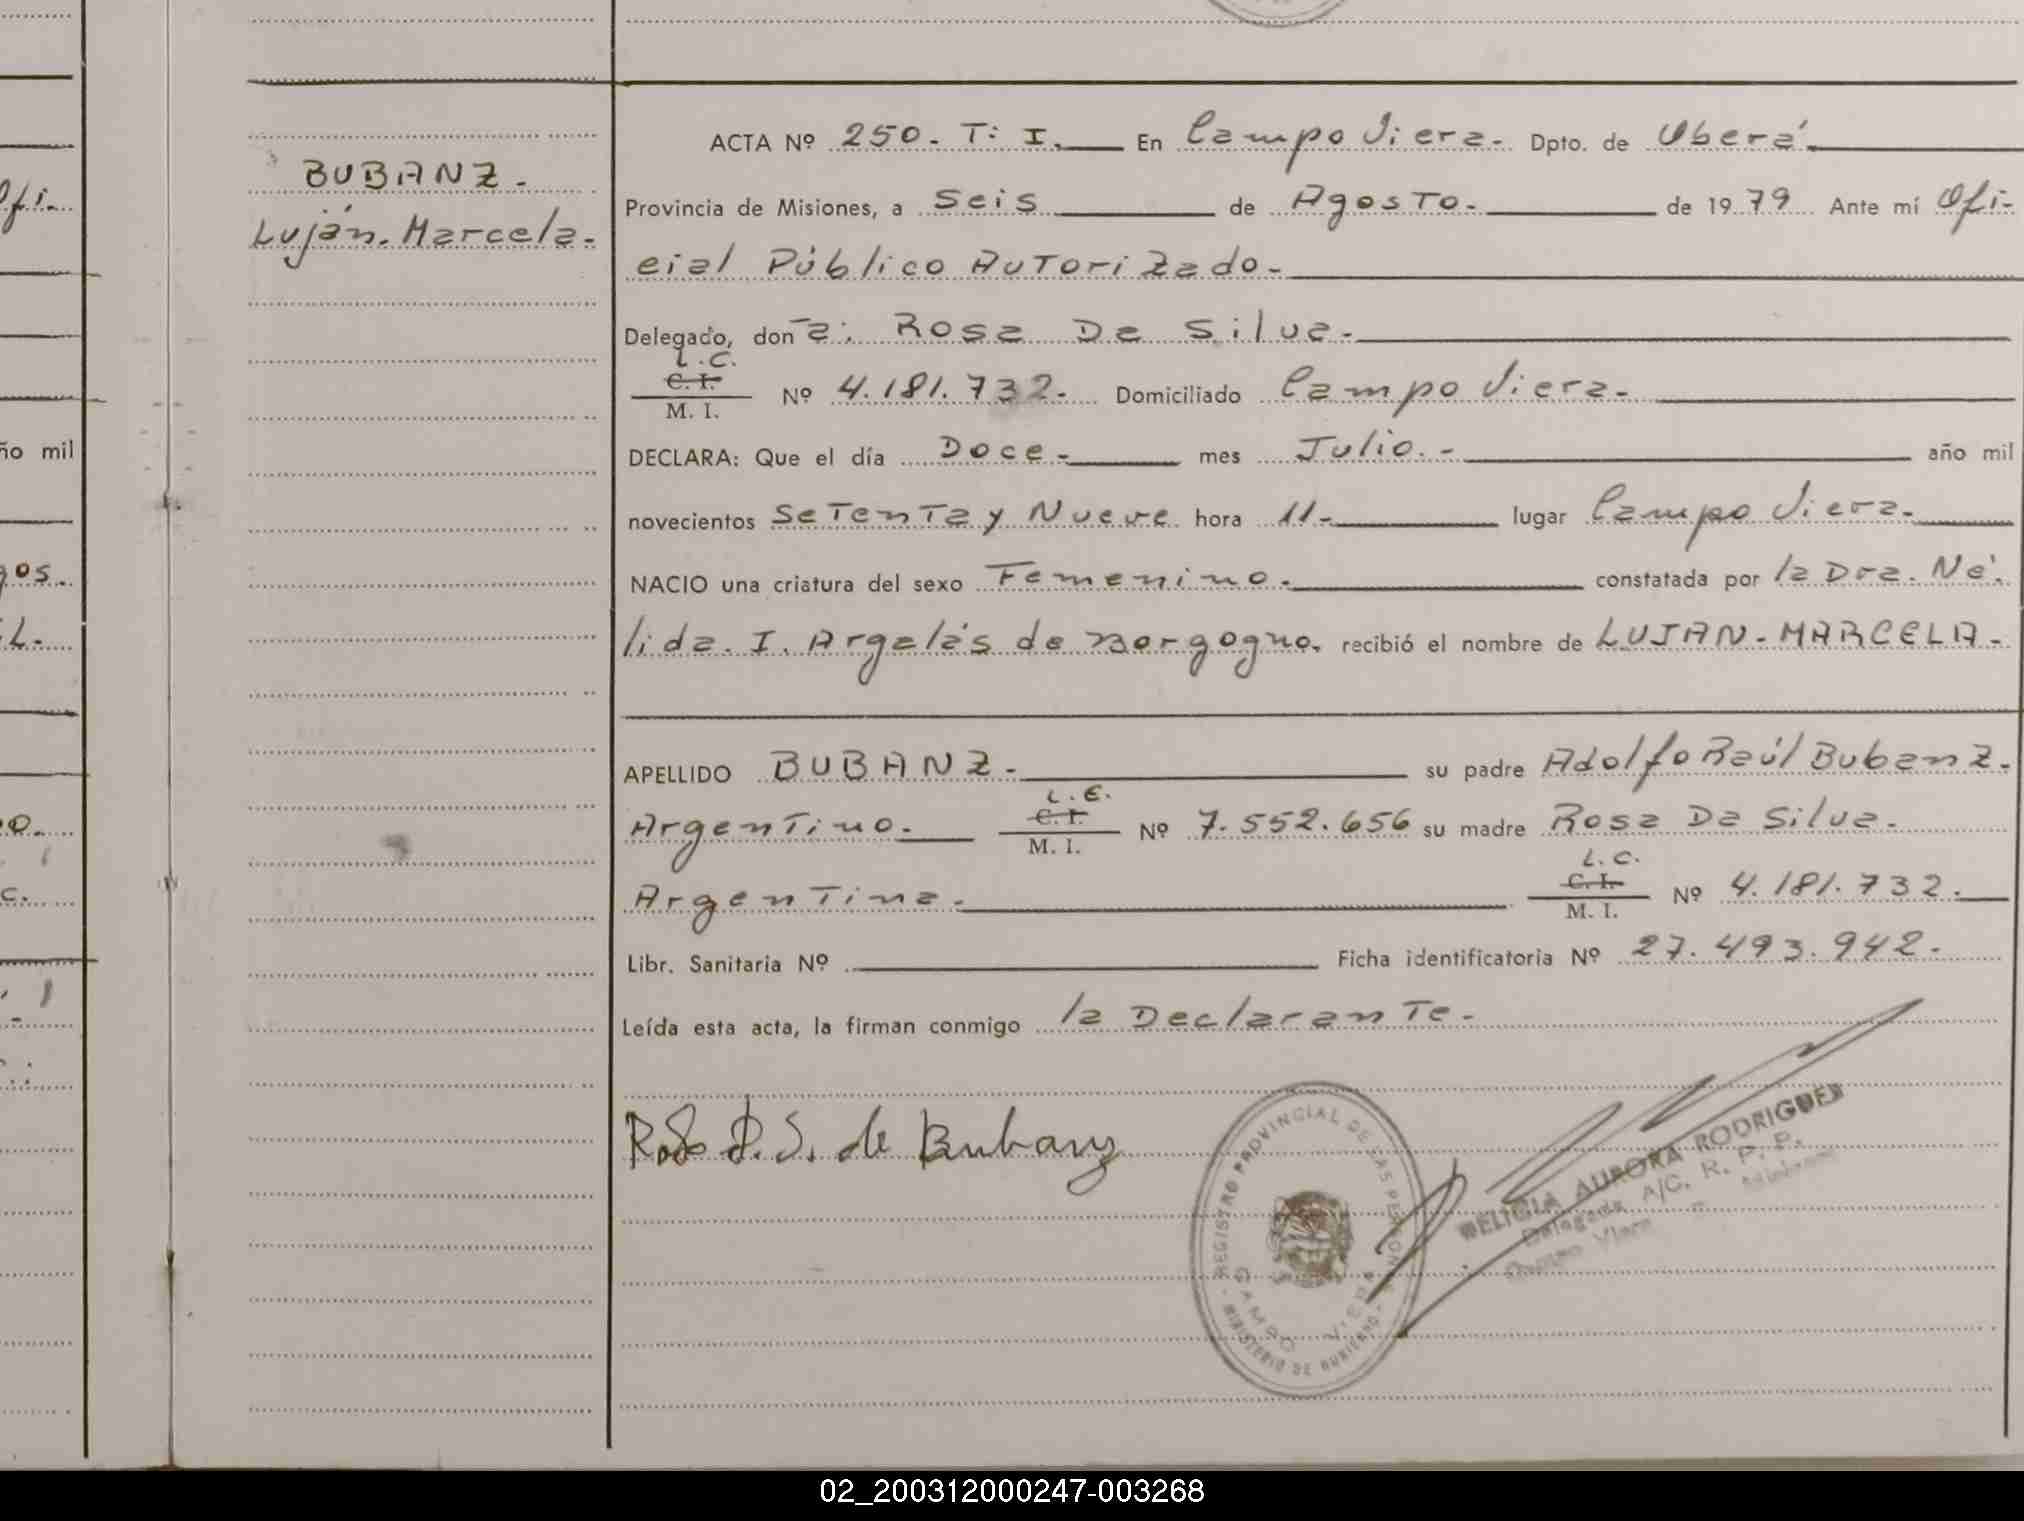 BUBANZ.
Luján. Marcela.
ACTA Nº 250. T: I. En Campo Viera. Dpto. de Oberá.
Provincia de Misiones, a Seis de Agosto. de 1979 Ante mí Ofi-
cial Público Autorizado.
Delegado, don a: Rosa Da Silva.
L.C.
C. I.
M. I. Nº 4.181.732. Domiciliado Campo Viera.
DECLARA: Que el día Doce. mes Julio. año mil
novecientos Setenta y Nueve hora 11. lugar Campo Viera.
NACIO una criatura del sexo Femenino. constatada por la Dra. Né.
lida. I. Argelás de Borgogno. recibió el nombre de LUJAN. MARCELA.
APELLIDO BUBANZ. su padre Adolfo Raúl Bubanz.
L.E.
C. I.
Argentino. M. I. Nº 7.552.656 su madre Rosa Da Silva.
L.C.
C. I.
Argentina. M. I. Nº 4.181.732.
Libr. Sanitaria Nº Ficha identificatoria Nº 27.493.942.
Leída esta acta, la firman conmigo la Declarante.
D. S. de Bubanz
REGISTRO PROVINCIAL DE LAS PERSONAS
CAMPO VIERA
MINISTERIO DE GOBIERNO
DELICIA AURORA RODRIGUEZ
Delegada A/C. R. P. P.
Campo Viera
ofi.
ño mil
gos.
02_200312000247-003268